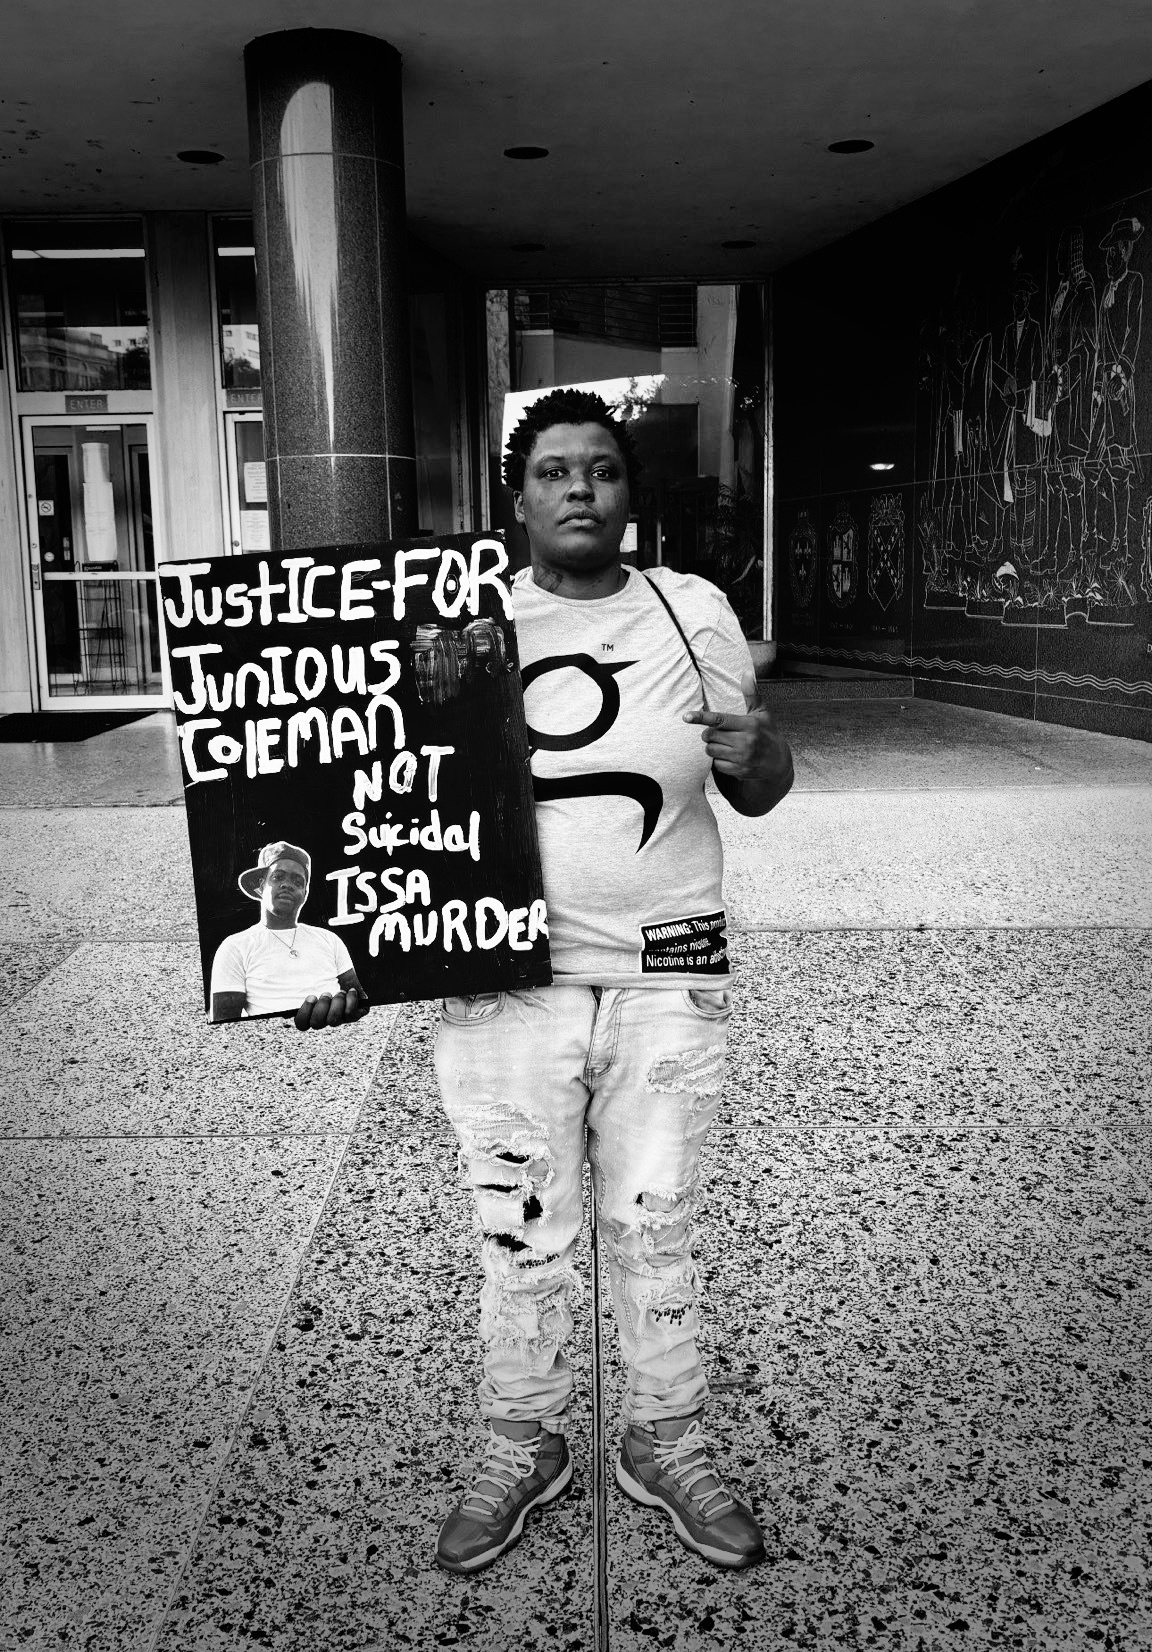 ENTER
ENTER
JustICE-FOR
JunIOUS
COlEMAN
NOT
Suicidal
ISSA
MURDER
TM
WARNING: This
contains
Nicotine is an